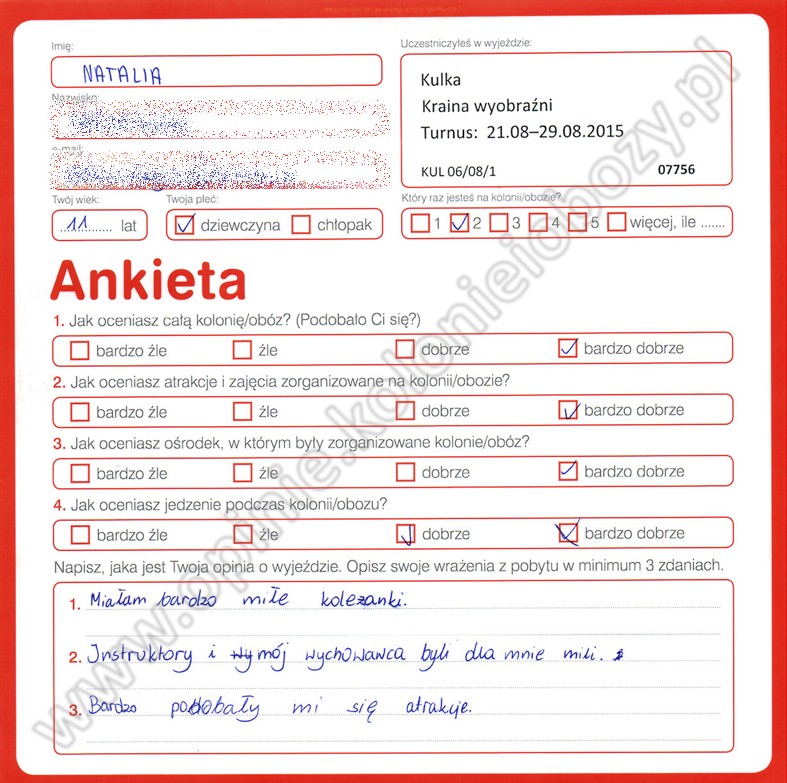 Imię:
NATALIA
Nazwisko:
e-mail:
Twój wiek:
11 lat
Twoja płeć:
dziewczyna chłopak
Uczestniczyłeś w wyjeździe:
Kulka
Kraina wyobraźni
Turnus: 21.08–29.08.2015
KUL 06/08/1 07756
Który raz jesteś na kolonii/obozie?
1 2 3 4 5 więcej, ile .......
Ankieta
1. Jak oceniasz całą kolonię/obóz? (Podobało Ci się?)
bardzo źle źle dobrze bardzo dobrze
2. Jak oceniasz atrakcje i zajęcia zorganizowane na kolonii/obozie?
bardzo źle źle dobrze bardzo dobrze
3. Jak oceniasz ośrodek, w którym były zorganizowane kolonie/obóz?
bardzo źle źle dobrze bardzo dobrze
4. Jak oceniasz jedzenie podczas kolonii/obozu?
bardzo źle źle dobrze bardzo dobrze
Napisz, jaka jest Twoja opinia o wyjeździe. Opisz swoje wrażenia z pobytu w minimum 3 zdaniach.
1. Miałam bardzo miłe koleżanki.
2. Instruktory i mój wychowawca byli dla mnie mili.
3. Bardzo podobały mi się atrakcje.
www.opinie.kolonieiobozy.pl